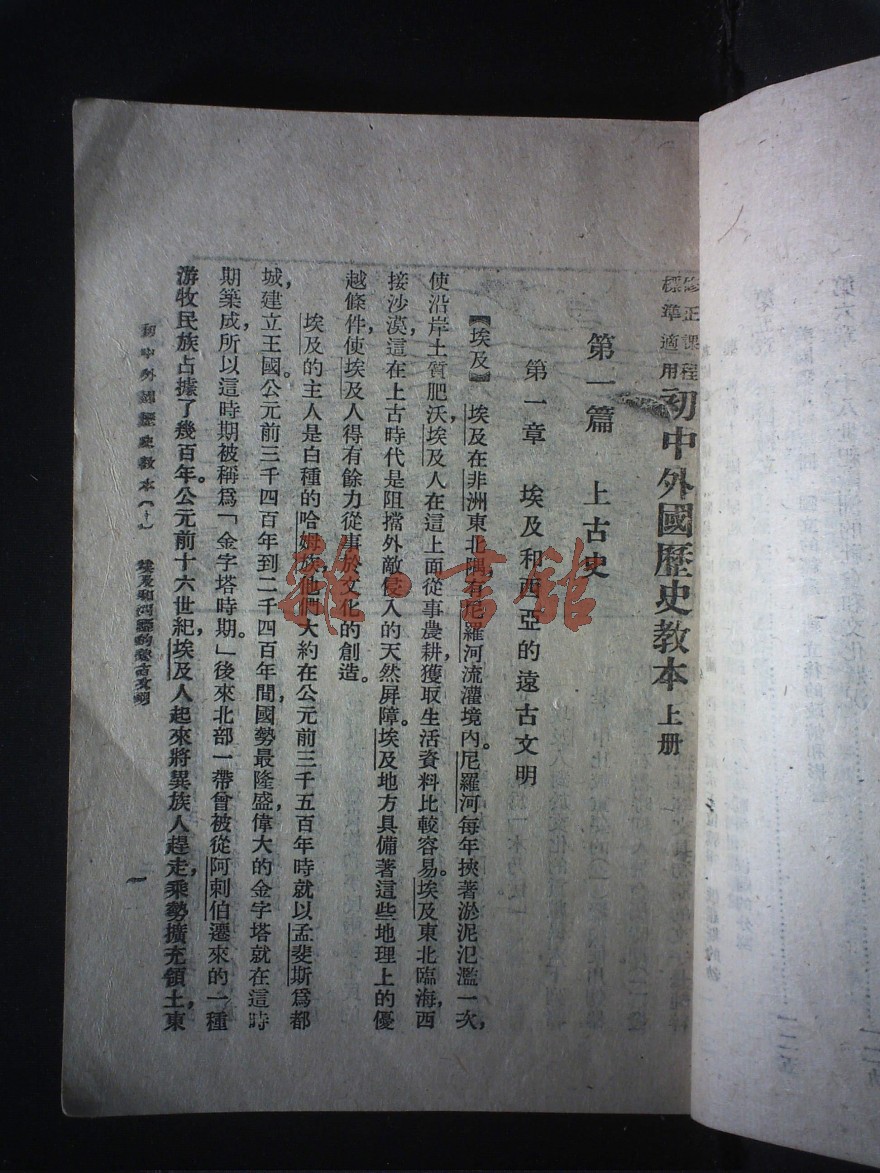 修正課程
標準適用
初中外國歷史教本 上册
第一篇 上古史
第一章 埃及和西亞的遠古文明
【埃及】 埃及在非洲東北隅，有尼羅河流灌境內。尼羅河每年挾著淤泥氾濫一次，
使沿岸土質肥沃，埃及人在這上面從事農耕，獲取生活資料比較容易。埃及東北臨海，西
接沙漠，這在上古時代是阻擋外敵侵入的天然屏障。埃及地方具備著這些地理上的優
越條件，使埃及人得有餘力從事於文化的創造。
埃及的主人是白種的哈姆族，他們大約在公元前三千五百年時就以孟斐斯爲都
城，建立王國。公元前三千四百年到二千四百年間，國勢最隆盛，偉大的金字塔就在這時
期築成，所以這時期被稱爲「金字塔時期。」後來北部一帶曾被從阿剌伯遷來的一種
游牧民族占據了幾百年。公元前十六世紀，埃及人起來將異族人趕走，乘勢擴充領土，東
初中外國歷史教本（上）
一
雜·書館